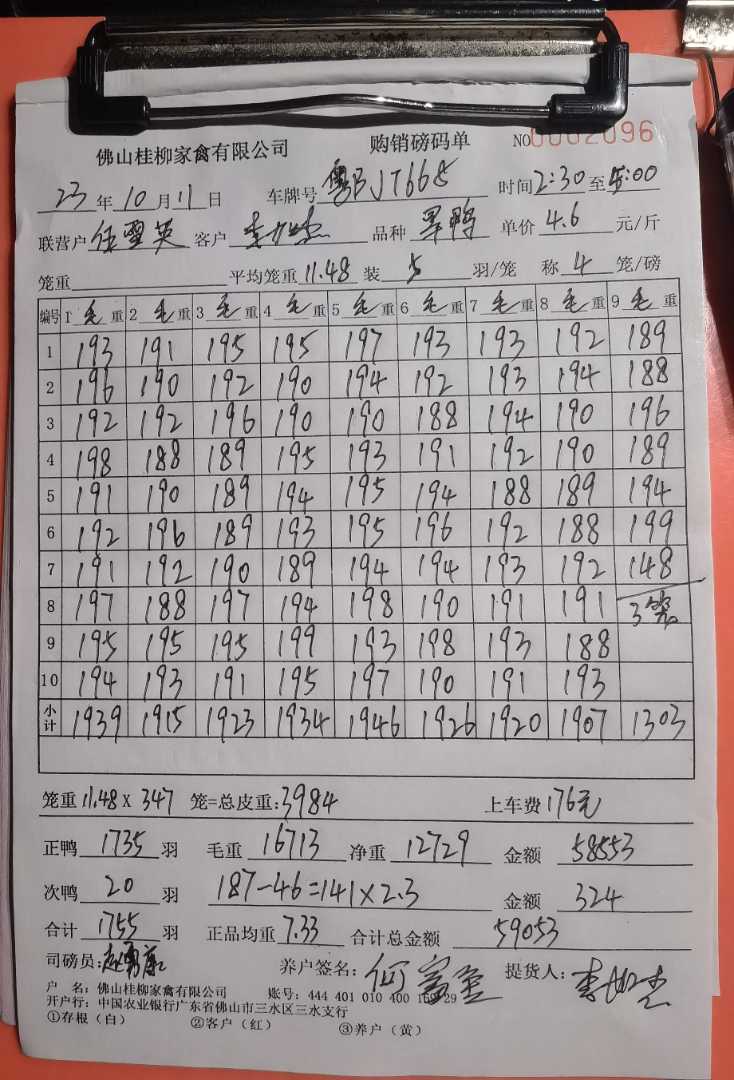 佛山桂柳家禽有限公司 购销磅码单 NO 0002096
23 年 10 月 11 日 车牌号 粤BJT668 时间 2:30 至 5:00
联营户 伍雪英 客户 品种 单价 4.6 元/斤
笼重 平均笼重 11.48 装 5 羽/笼 称 4 笼/磅
编号 1 毛 重 2 毛 重 3 毛 重 4 毛 重 5 毛 重 6 毛 重 7 毛 重 8 毛 重 9 毛 重
1 193 191 195 195 197 193 193 192 189
2 196 190 192 190 194 192 193 194 188
3 192 192 196 190 190 188 194 190 196
4 198 188 189 195 193 191 192 190 189
5 191 190 189 194 195 194 188 189 194
6 192 196 189 193 195 196 192 188 199
7 191 192 190 189 194 194 193 192 148
8 197 188 197 194 198 190 191 191 3笼
9 195 195 195 199 193 198 193 188
10 194 193 191 195 197 190 191 193
小计 1939 1915 1923 1934 1946 1926 1920 1907 1303
笼重 11.48 X 347 笼=总皮重: 3984 上车费 176元
正鸭 1735 羽 毛重 16713 净重 12729 金额 58553
次鸭 20 羽 187-46=141×2.3 金额 324
合计 1755 羽 正品均重 7.33 合计总金额 59053
司磅员: 养户签名: 提货人:
户 名: 佛山桂柳家禽有限公司 账号: 444 401 010 400 169 29
开户行: 中国农业银行广东省佛山市三水区三水支行
①存根（白） ②客户（红） ③养户（黄）